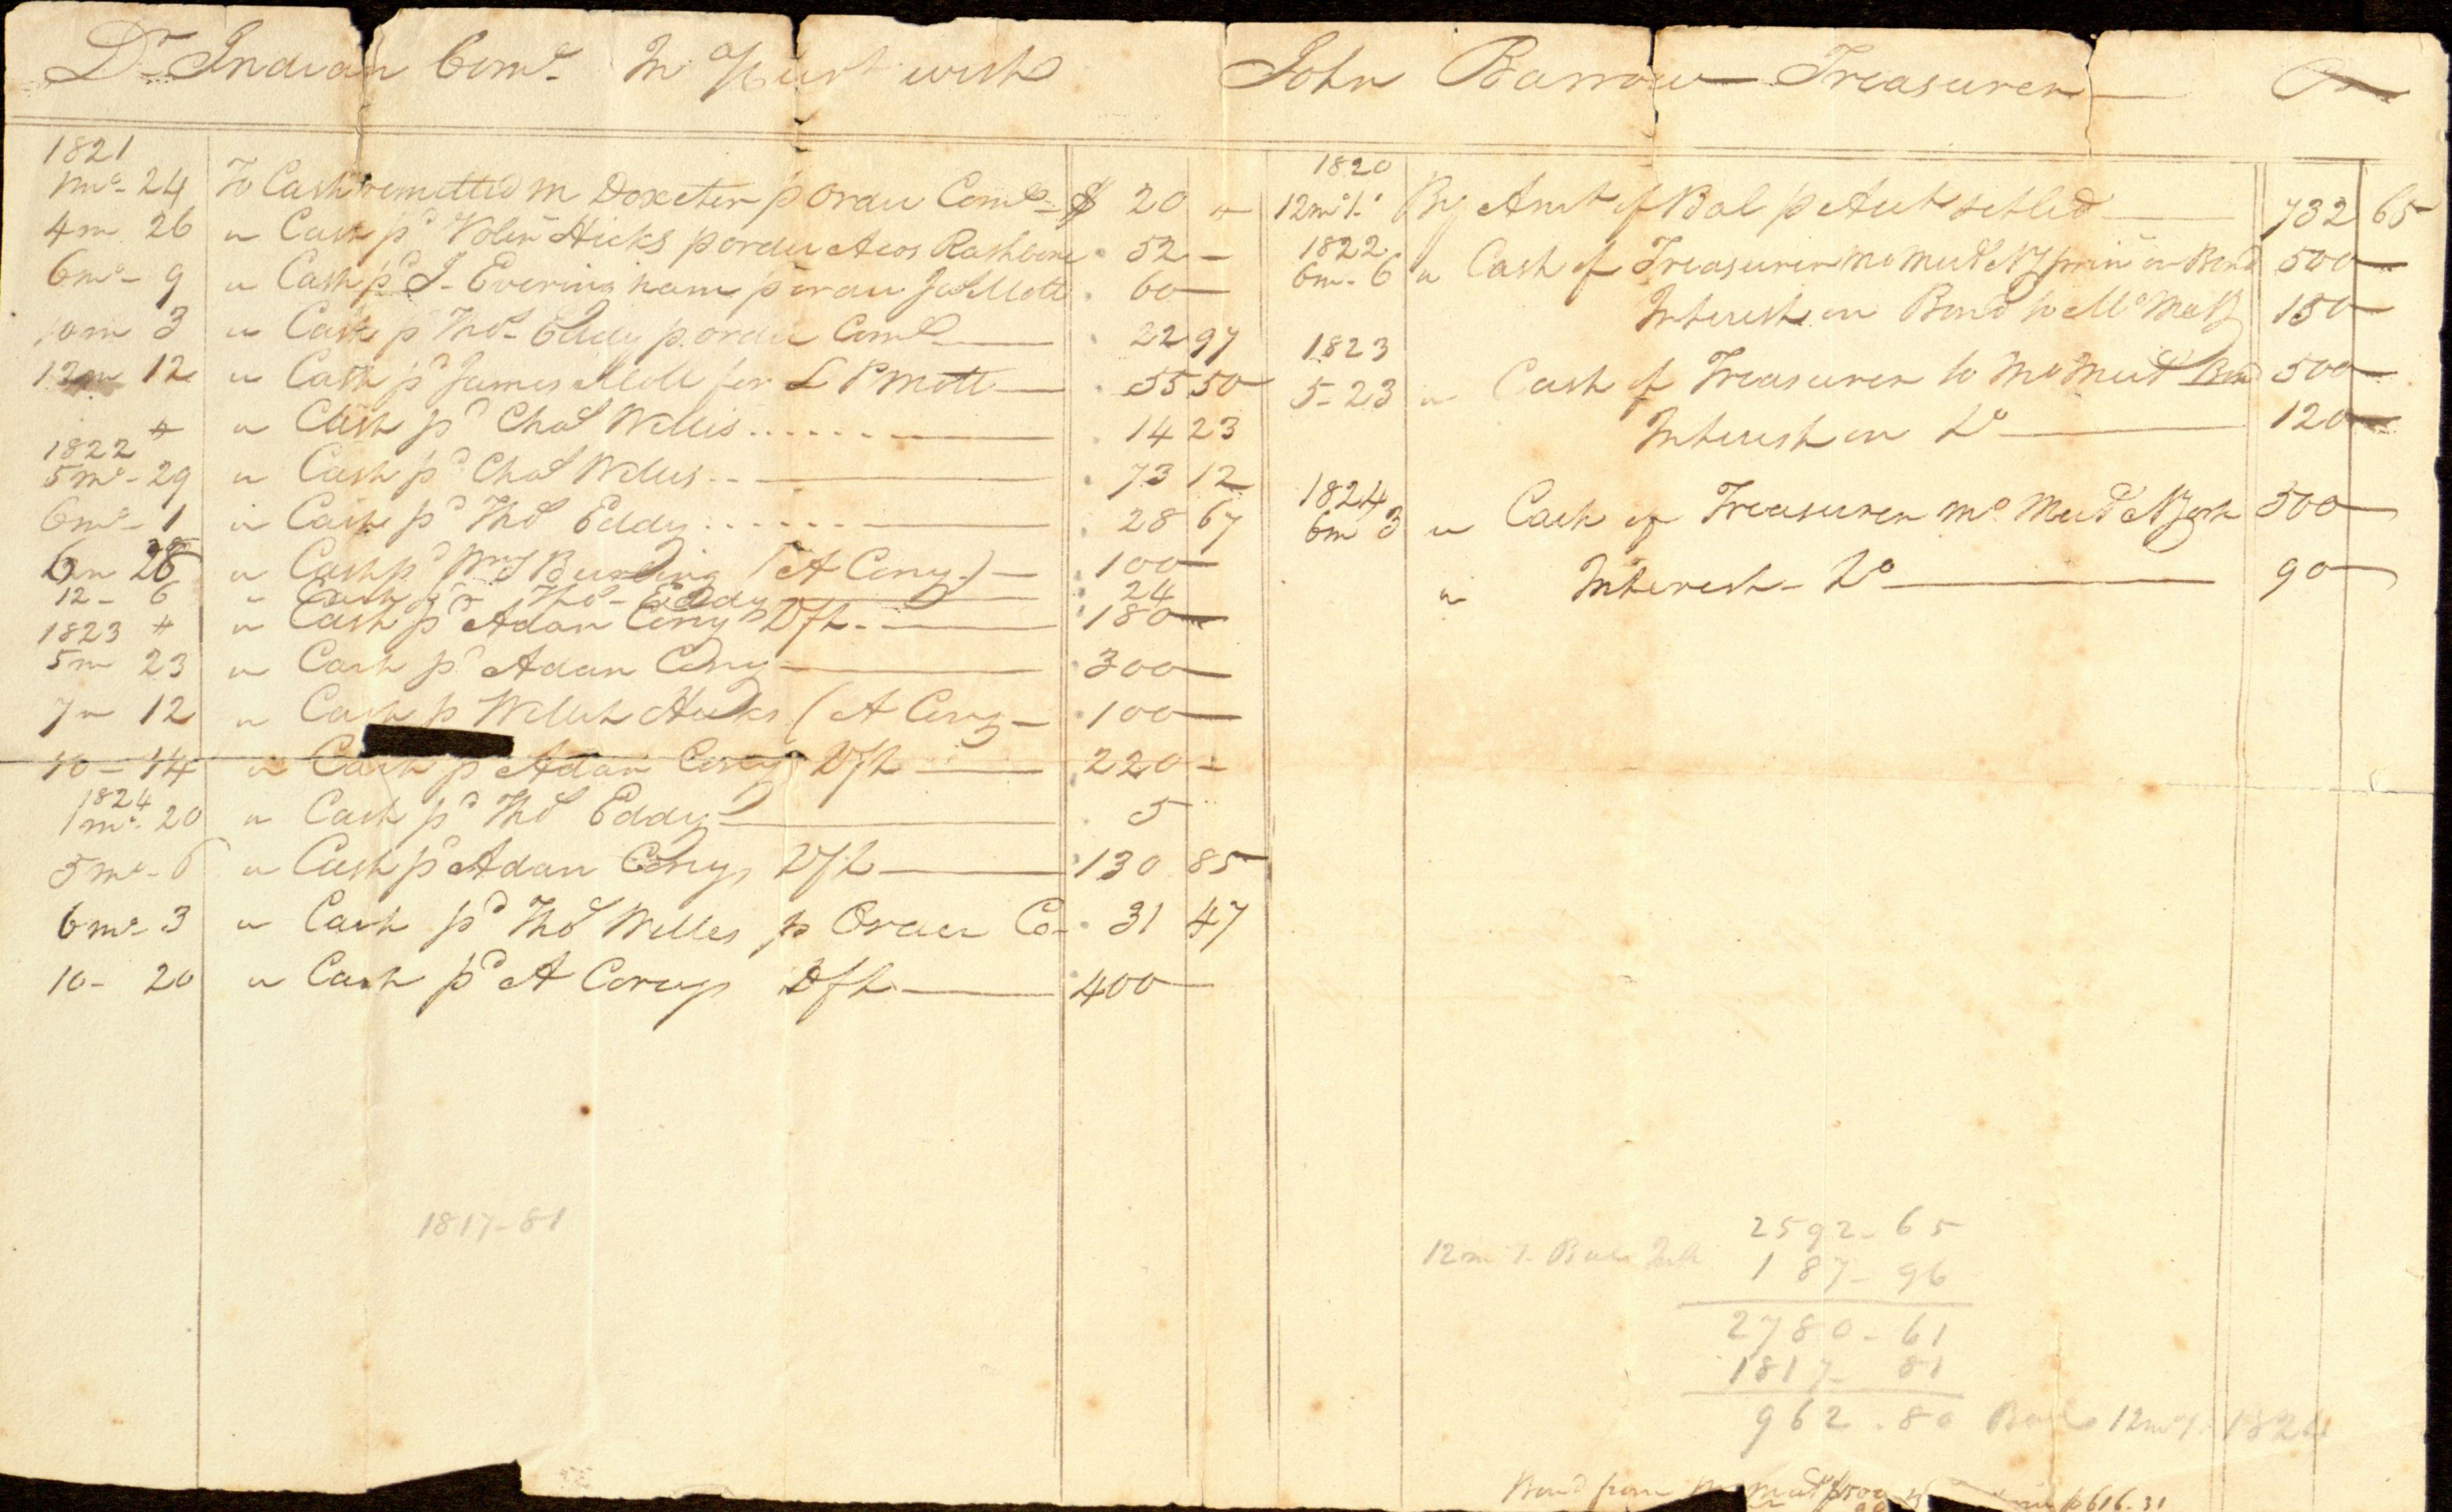 Dr Indian Come In Acct with
1821
mo- 24 To Cash remitted M Doxeter p order Come $ 20 "
4m 26 " Cash pd Volen Hicks p order Acos Rathbone 52 -
6mo- 9 " Cash pd I- Everingham p order Jas Mott 60 —
10m 3 " Cash pd Thos- Eddy p. order Come 22 97
12m 12 " Cash pd James Mott for L P Mott 55 50
" " Cash pd Chas Willis 14 23
1822
5mo- 29 " Cash pd Chas Willis 73 12
6mo- 1 " Cash pd Thos Eddy 28 67
6m 28 " Cash pd Burling (A Cony.) 100 —
12- 6 " Cash pd Thos- Eddy 24
1823 " " Cash pd Adam Conys Dft 180 —
5m 23 " Cash pd Adam Cony 300 —
7m 12 " Cash p Willet Hicks (A Cony 100 —
10- 14 " Cash pd Adam Conys Dft 220 -
1824
1mo- 20 " Cash pd Thos Eddy 5
5mo- 6 " Cash pd Adam Conys Dft 130 85
6mo- 3 " Cash pd Thos Willes p Order Co- 31 47
10- 20 " Cash pd A Conys Dft 400 —
1817-81
John Barrow Treasurer Cr
1820
12mo 1. By Amt of Bal p Acct settled 732 65
1822
6m- 6 " Cash of Treasurer Mo Meetg NY prin on Bond 500 —
Interest on Bond to Mo Meetg 150 —
1823
5-23 " Cash of Treasurer to Mo Meetg Bond 500 —
Interest on Do 120 —
1824
6m 3 " Cash of Treasurer Mo Meetg NYork 500 —
" Interest- Do 90 —
2592-65
12m 1. Bal 187-96
2780-61
1817- 81
962.80 Bal 12mo 1. 1824
Bond from Mo Meetg $500 $616-31